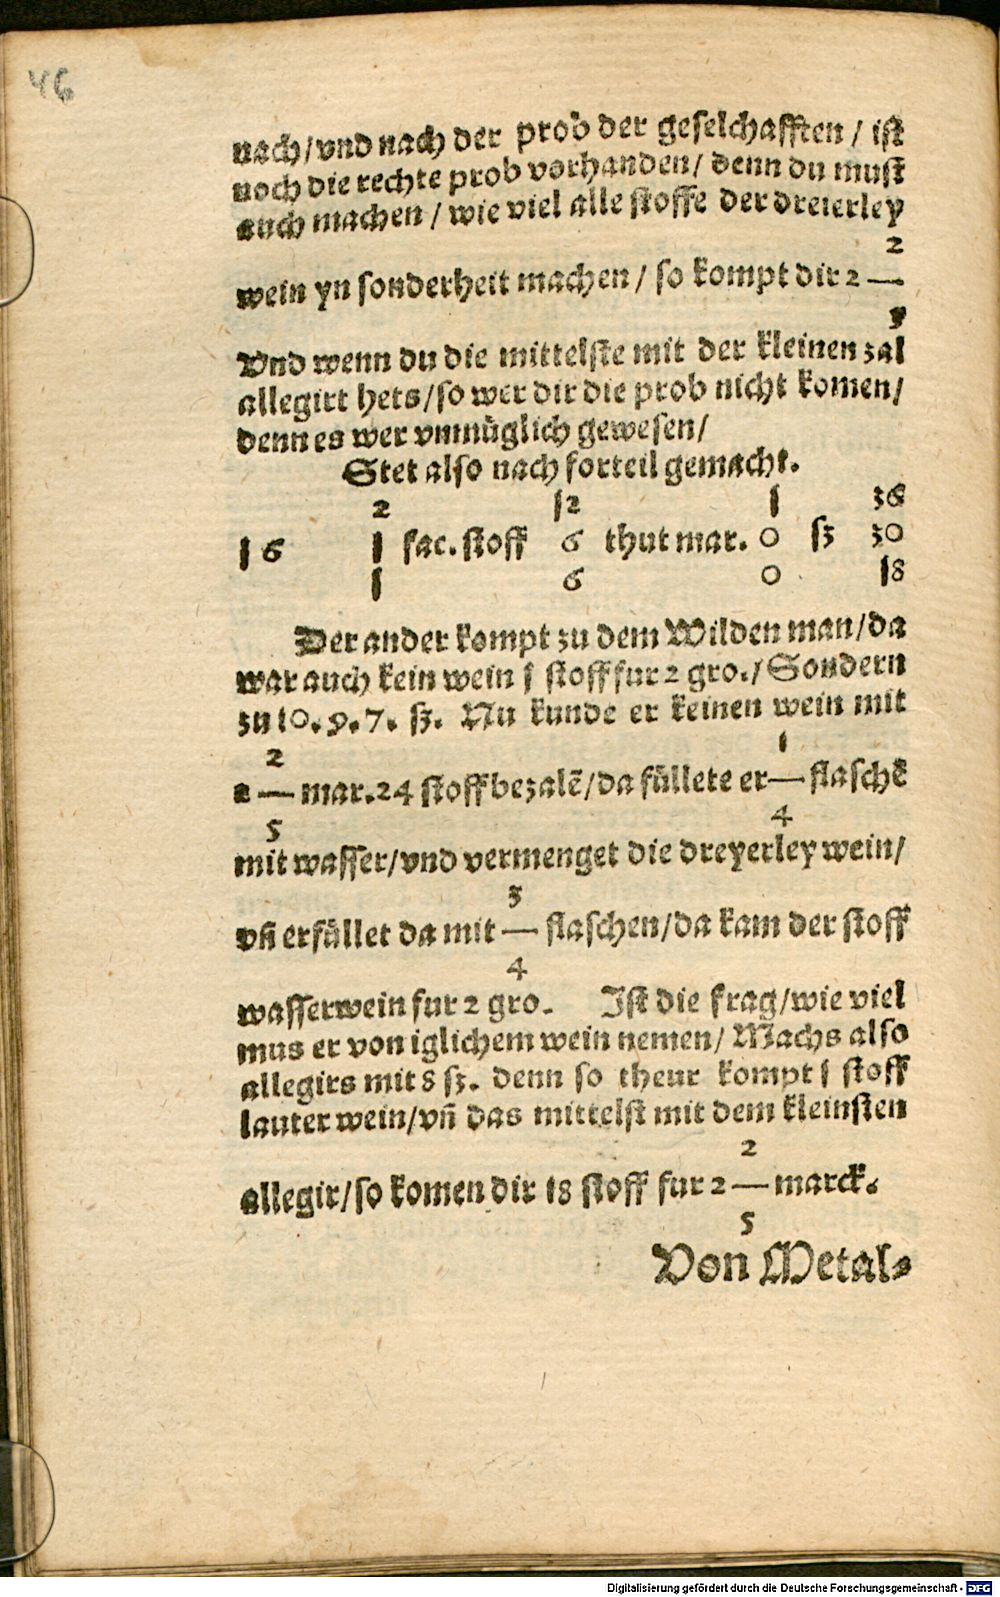 46
nach/vnd nach der prob der geselchafften / ist
noch die rechte prob vorhanden/ denn du must
auch machen / wie viel alle stoffe der dreierley
2
wein yn sonderheit machen / so kompt dir 2 —
5
Vnd wenn du die mittelste mit der kleinen zal
allegirt hets/so wer dir die prob nicht komen/
denn es wer vnmüglich gewesen/
Stet also nach forteil gemacht.
2 12 1 36
16 1 fac. stoff 6 thut mar. 0 ß 30
1 6 0 18
Der ander kompt zu dem Wilden man/da
war auch kein wein 1 stoff fur 2 gro./Sondern
zu 10. 9. 7. ß. Nu kunde er keinen wein mit
2 1
2 — mar.24 stoff bezalē/da füllete er— flaschē
5 4
mit wasser/vnd vermenget die dreyerley wein/
3
vñ erfüllet da mit — flaschen/da kam der stoff
4
wasserwein fur 2 gro. Ist die frag/wie viel
mus er von iglichem wein nemen/ Machs also
allegirs mit 8 ß. denn so theur kompt 1 stoff
lauter wein/vñ das mittelst mit dem kleinsten
2
allegir/so komen dir 18 stoff fur 2 — marck.
5
Von Metal⸗
Digitalisierung gefördert durch die Deutsche Forschungsgemeinschaft - DFG